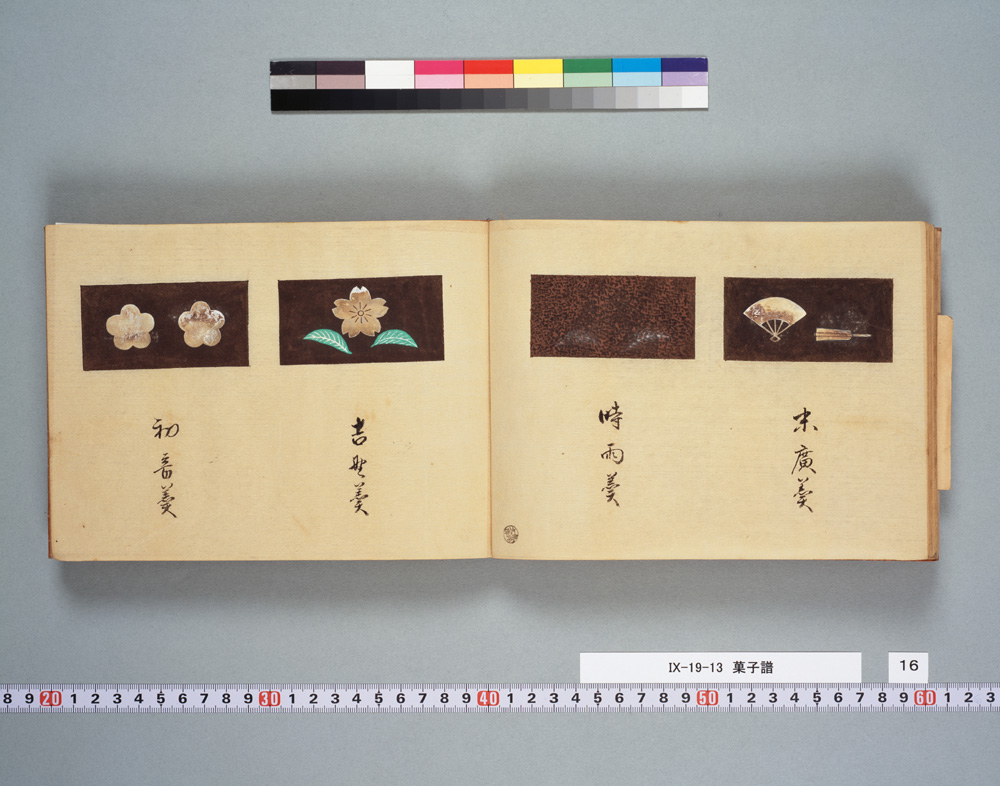 末廣羹
時雨羹
吉野羹
初音羹
IX-19-13 菓子譜
16
8 9 20 1 2 3 4 5 6 7 8 9 30 1 2 3 4 5 6 7 8 9 40 1 2 3 4 5 6 7 8 9 50 1 2 3 4 5 6 7 8 9 60 1 2 3